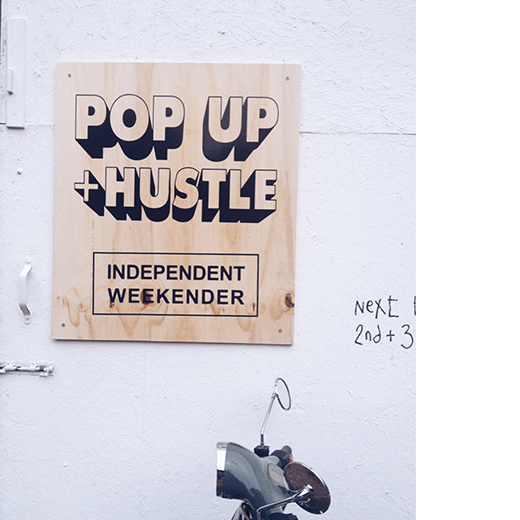 POP UP
+HUSTLE
INDEPENDENT
WEEKENDER
NEXT
2nd + 3